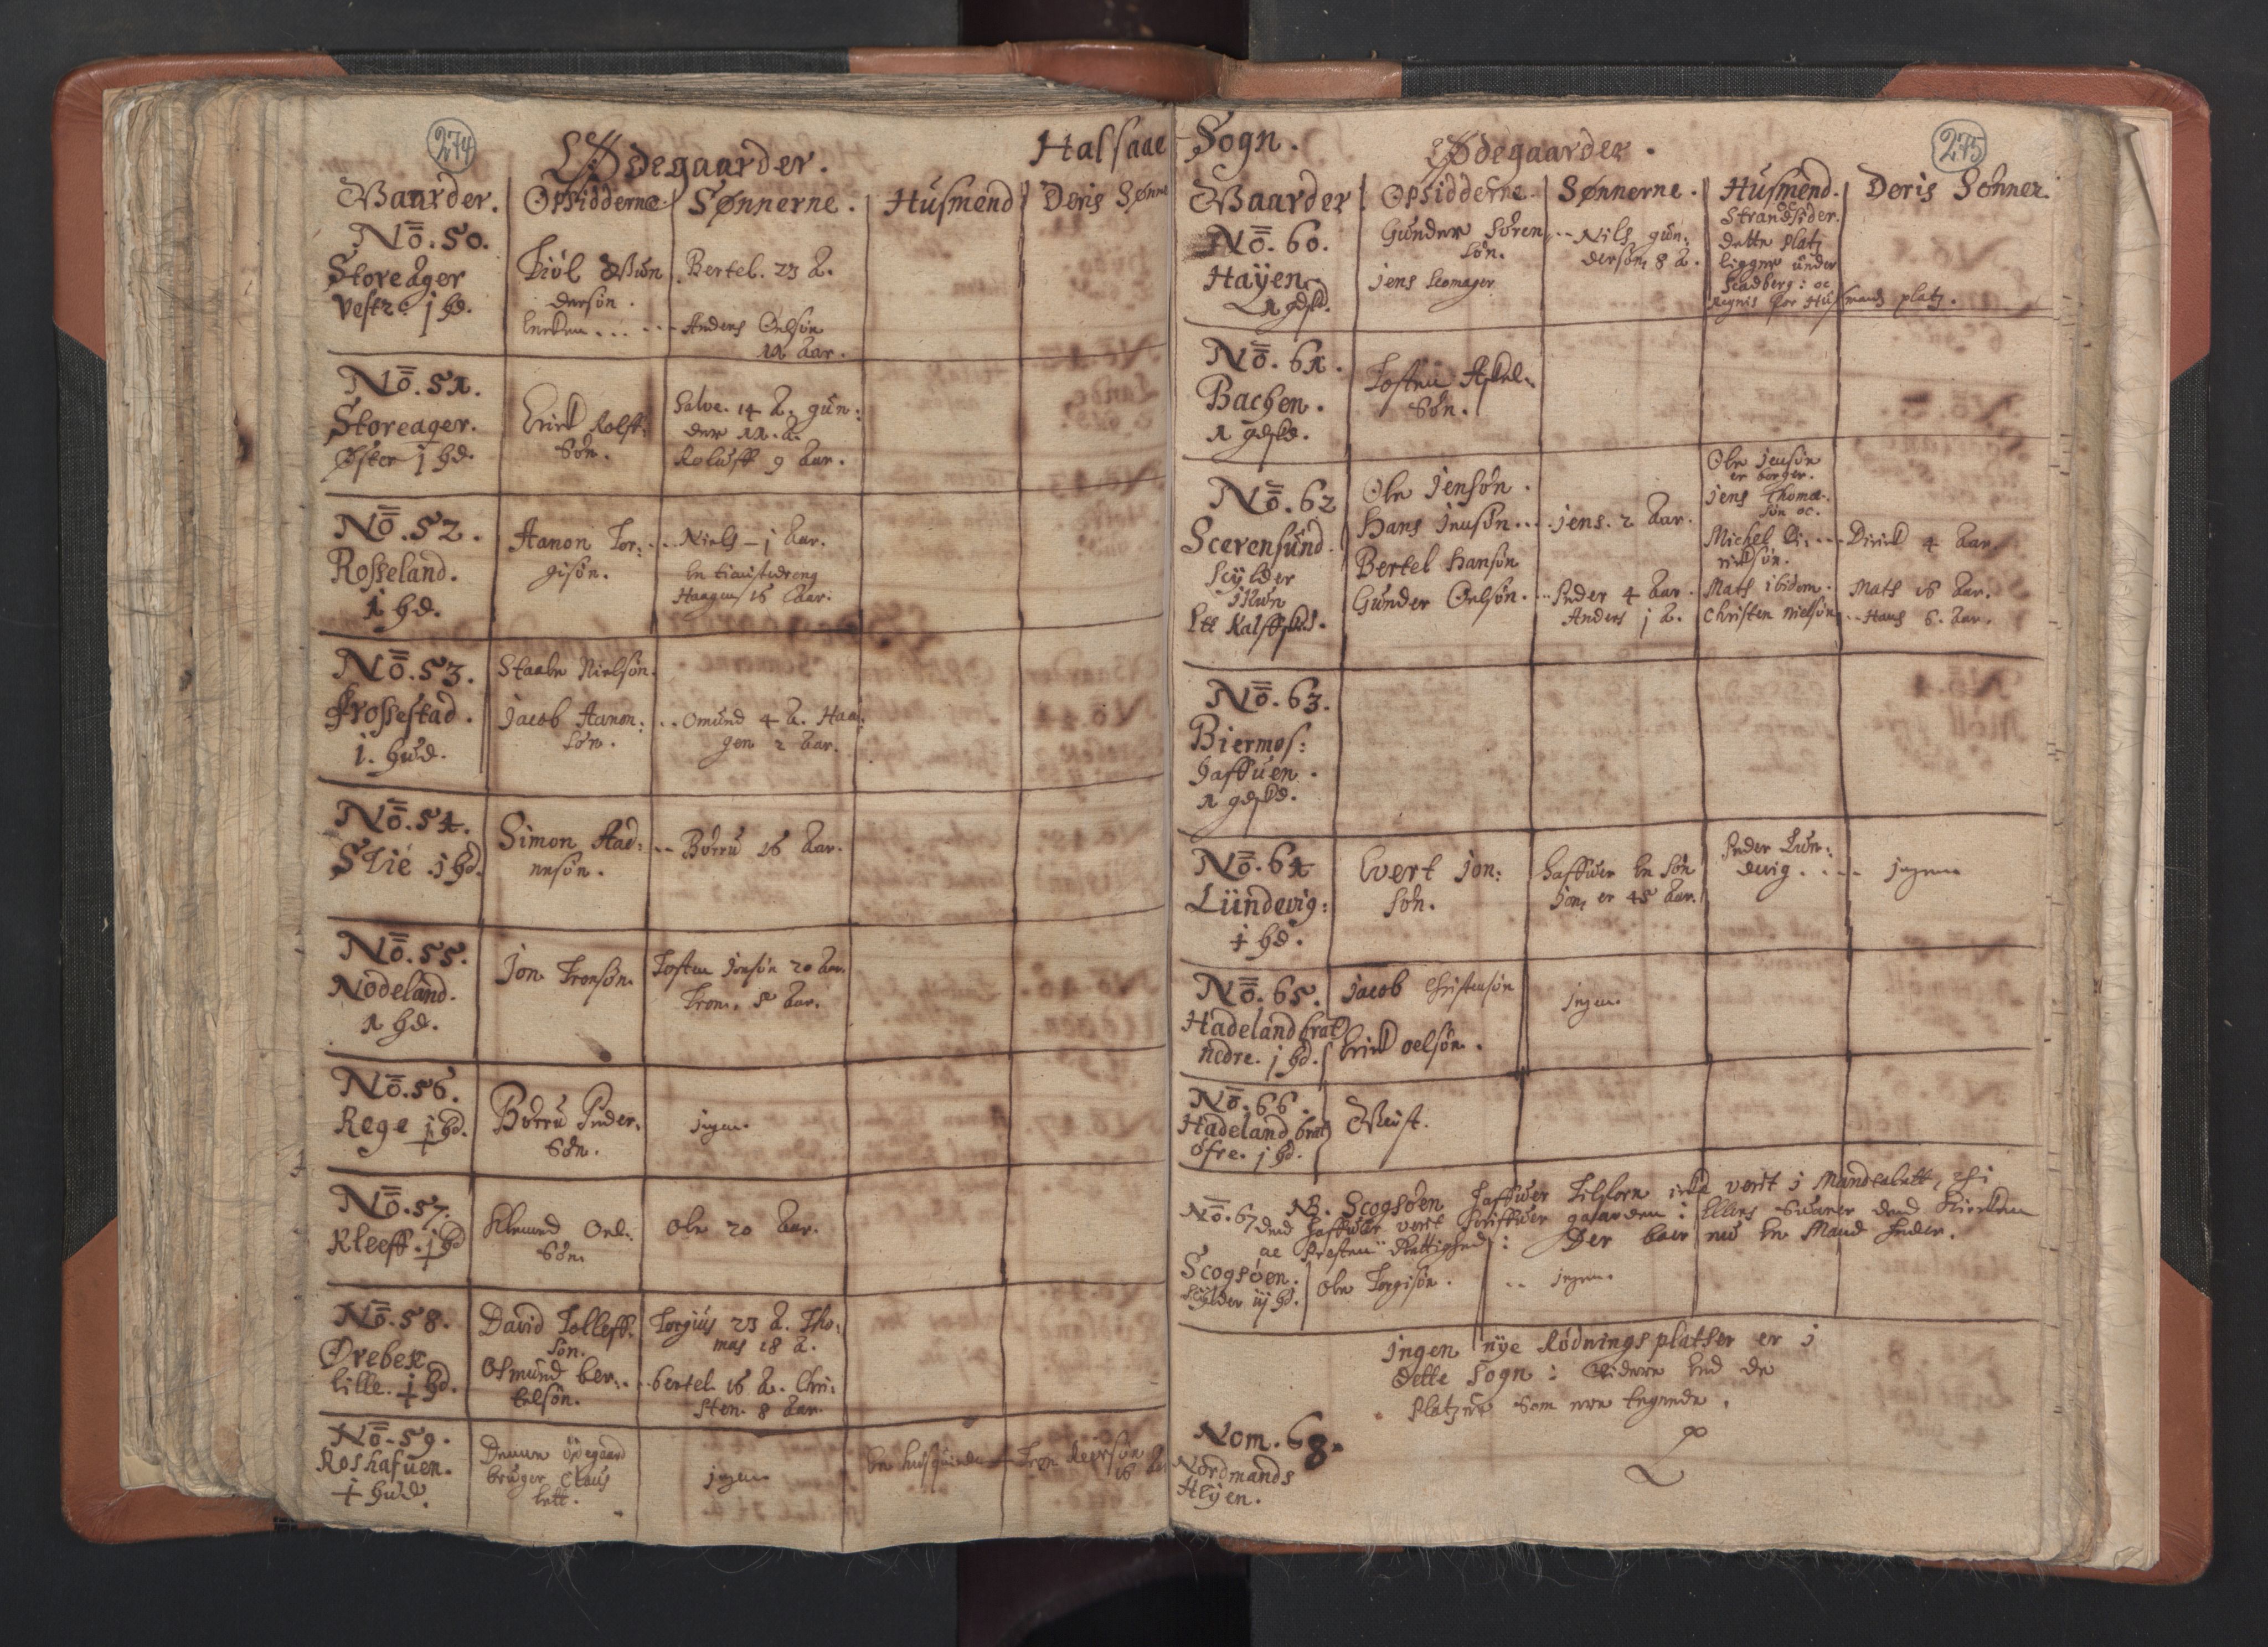 274
Ødegaarder.
Halsaae
Gaarder. Opsidderne. Sønnerne. Husmend Deris Sønne
No. 50.
Storeager
Vestre j hd.
Kiøl Gun
dersøn.
Bertel. 23 A.
Enken ... Anders Oelsøn
11 Aar.
No. 51.
Storeager.
Øster j hd.
Erick Rolff:
Søn.
Salve. 14 A. gun:
der 11. A.
Roluff 9 Aar.
No. 52.
Rosseland.
1 hd.
Aanon Tor:
gisøn.
Niels - j Aar.
En tienistedreng
Haagen 16 Aar.
No. 53.
Frossestad.
1. hud.
Staale Nielsøn.
Jacob Aanon:
søn.
Omund 4 A. Haa:
gen 2 Aar.
No. 54.
Stie . j hd.
Simon Aad:
nesøn.
Børru 16 Aar.
No. 55.
Nodeland.
1 hd.
Jon Tronsøn.
Tosten Jonsøn 20 Aar.
Tron. 5 Aar.
No. 56.
Rege j hd.
Børru Peder:
Søn.
ingen.
No. 57.
Kleeff. j hd
Klemed Oel:
Søn.
Ole 20 Aar.
No. 58.
Ørebek
lille. j hd.
David Tolleff:
søn.
Osmund ber:
telsøn.
Torgius 23 A. Tho:
mas 18 A.
bertel 16 A. Chri:
sten. 8 Aar.
No. 59.
Roshafuen.
j hud.
Denne ødegaard
bruger Claus
bett.
ingen
En husquinde
Tron
16 A
Sogn.
Ødegaarder.
275
Gaarder. Opsidderne Sønnerne. Husmend. Deris Sønner
No. 60.
Haÿen
1 gdsk.
Gunder Søren
søn.
Jens Skomager
Nils gun:
dersøn 8 A.
Strandsider.
dette platz
ligger under
Skadberg: oc
Regnis for Husmands platz.
No. 61.
Bachen.
1 gdsk.
Tosten Askel:
Søn.
No. 62
Scerensund.
Scÿlder
ikun
Ett Kalffsk.
Ole Jensøn.
Hans Jensøn... jens. 2 Aar.
Bertel Hansøn
Gunder Oelsøn. Peder 4 Aar.
Anders j A.
Ole Jensøn
er borger.
Jens Thome:
søn oc.
Michel Di:
ricksøn.
Dirick 4 Aar.
Mats ibidem. Mats 16 Aar.
Christen Nielsøn Hans 6. Aar.
No. 63.
Biermos:
haffuen.
1 gdsk.
No. 64
Lündevig:
j hd.
Evert Jon:
Søn.
haffuer En Søn
Jon, er 45 Aar.
Peder Lun:
devig.
ingen
No. 65.
Hadeland brat
nedre. j hd.
Jacob Christensøn
Erick oelsøn.
ingen.
No. 66.
Hadeland brat
øfre. j hd.
Øust.
No. 67
NB. Scogsøen haffuer Tilforn icke verit i Mandtalett, thi
dend haffuer verit gaarden: Ellers suarer dend Kircken
oc Presten Rettighed: Der boer nu En Mand heder.
Scogsøen.
schÿlder ij hd.
Ole Torgisøn. ingen.
Jngen nÿe Rødnings platser er i
dette Sogn: videre End de
Platzer som ere tegnede.
Nom. 68.
Nordmands
Høÿen.